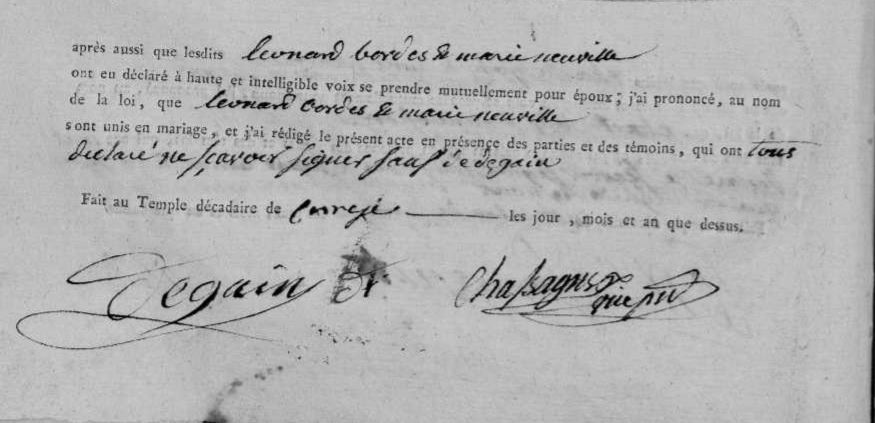 après aussi que lesdits leonard bordes & marie neuville
ont en déclaré à haute et intelligible voix se prendre mutuellement pour époux ; j'ai prononcé, au nom
de la loi, que leonard bordes & marie neuville
sont unis en mariage, et j'ai rédigé le présent acte en présence des parties et des témoins, qui ont tous
declaré ne sçavoir signer sauf degain
Fait au Temple décadaire de Correze les jour, mois et an que dessus.
Degain Chassagnes